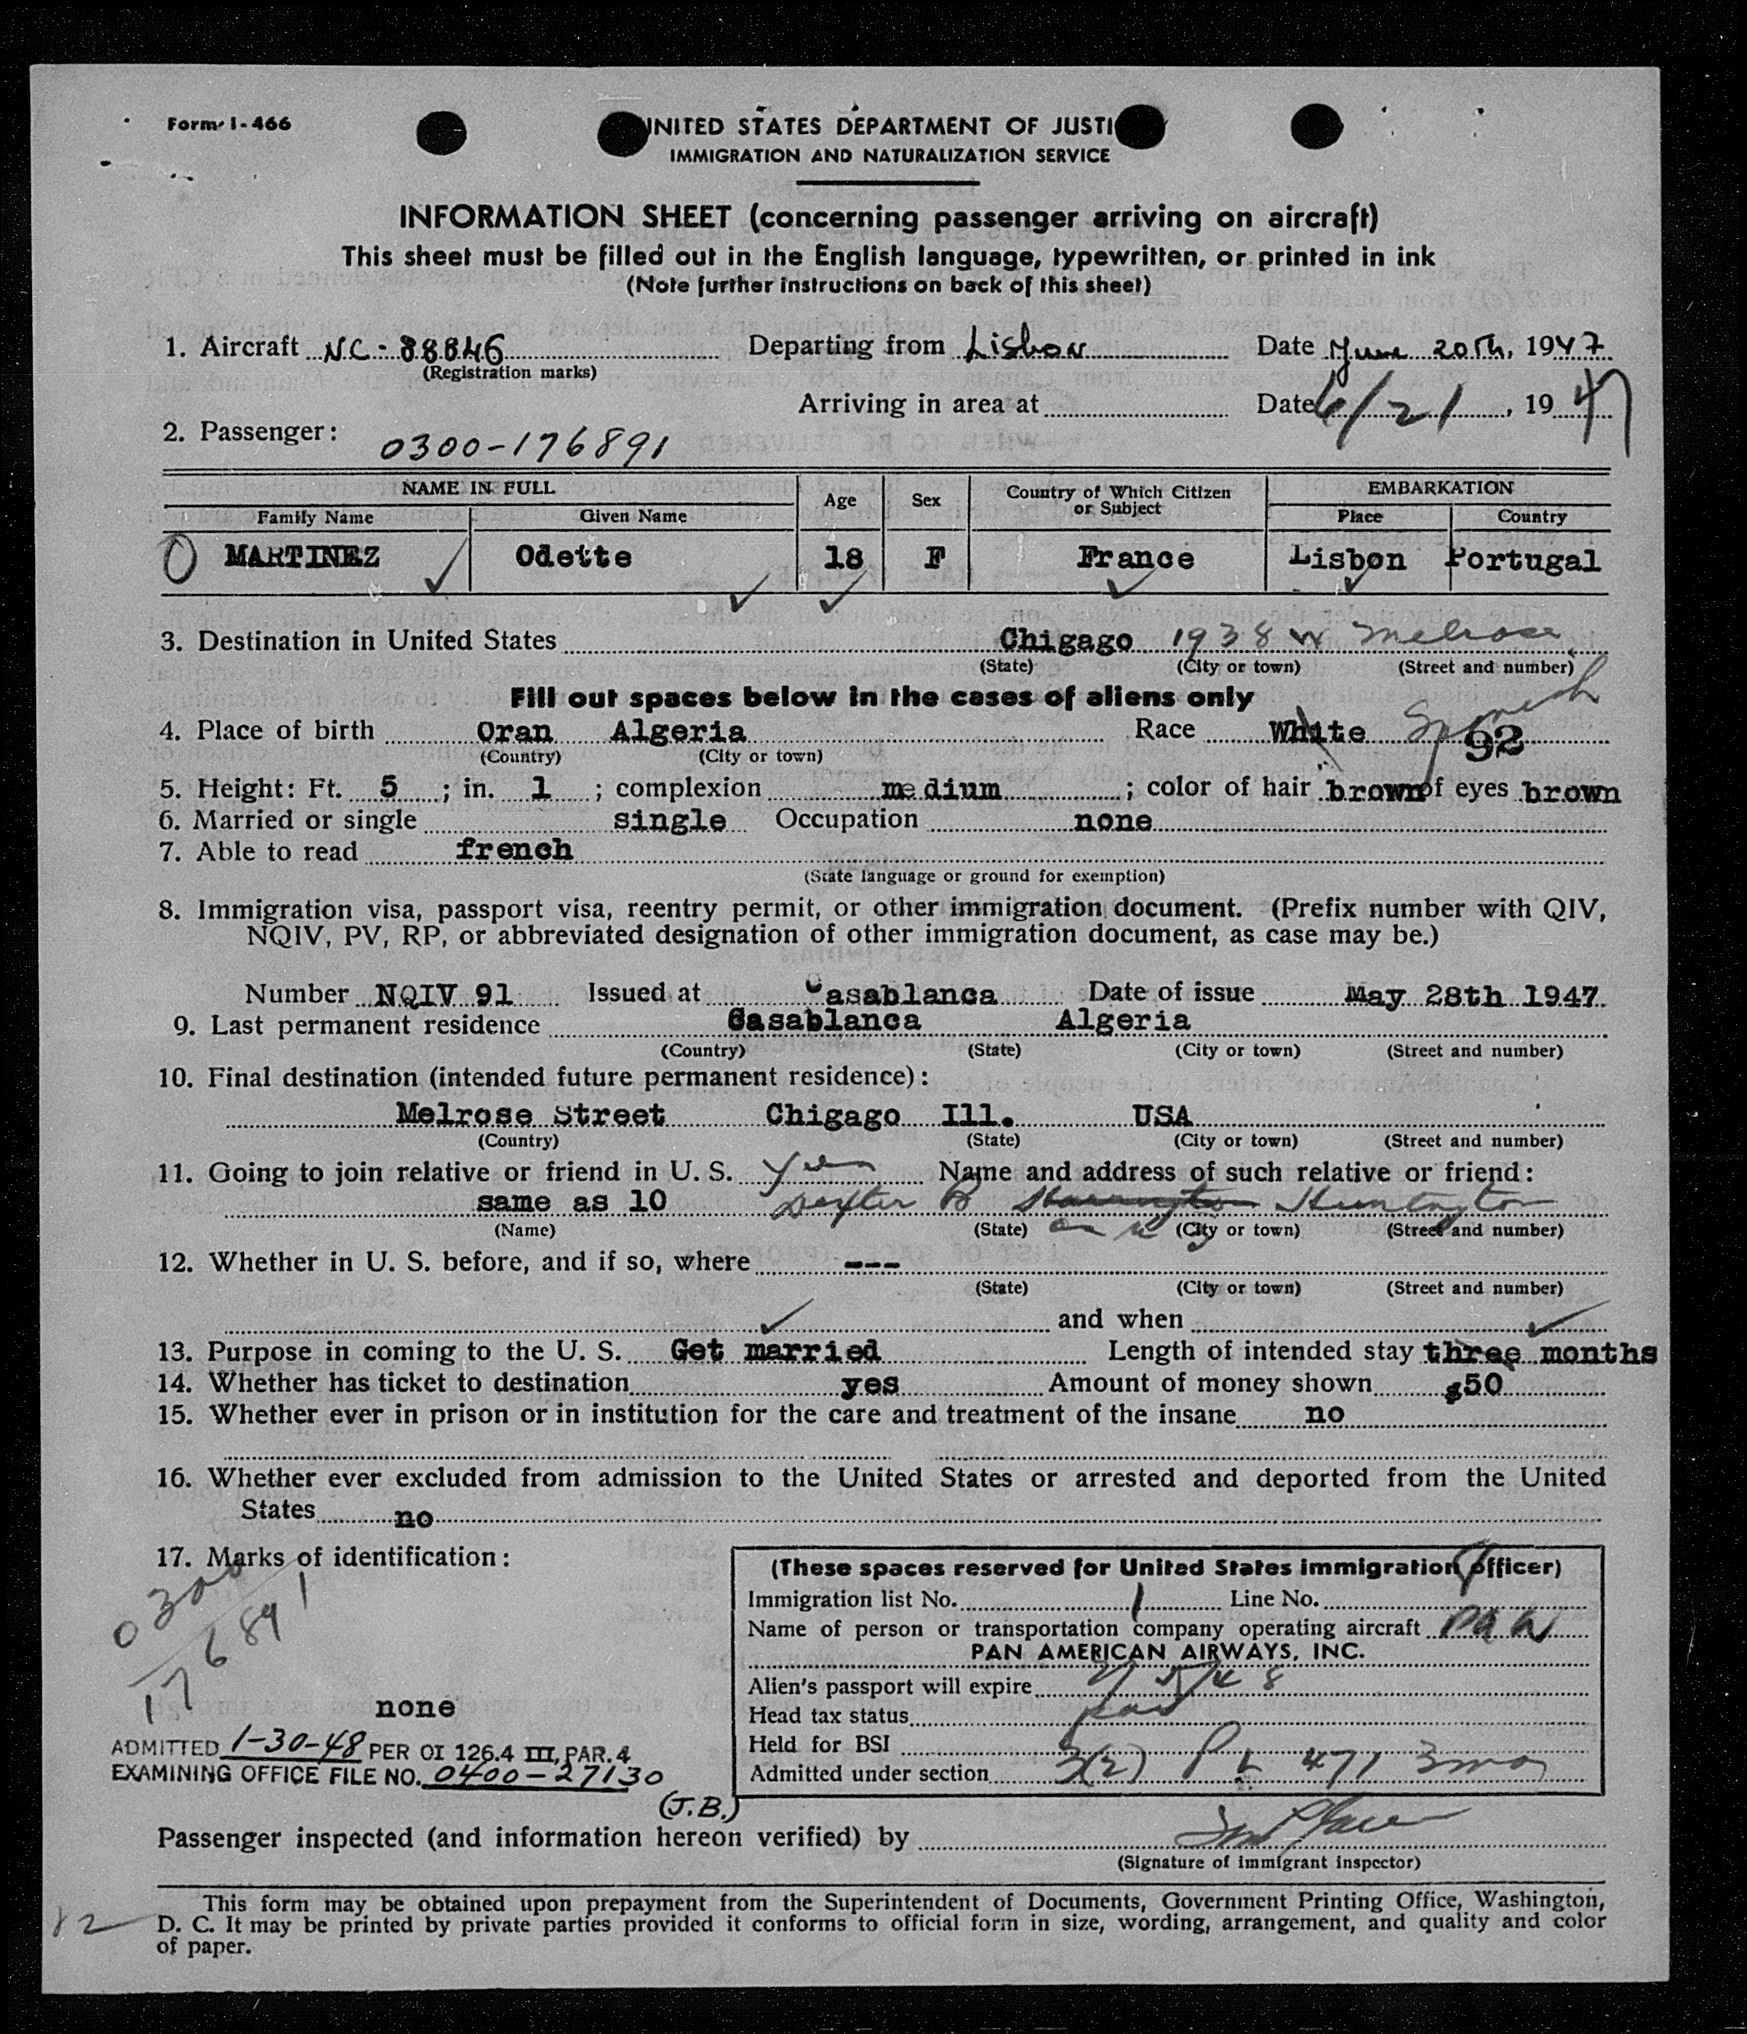 Form I-466
UNITED STATES DEPARTMENT OF JUSTI
IMMIGRATION AND NATURALIZATION SERVICE
INFORMATION SHEET (concerning passenger arriving on aircraft)
This sheet must be filled out in the English language, typewritten, or printed in ink
(Note further instructions on back of this sheet)
1. Aircraft NC-88846 Departing from Lisbon Date June 20th, 1947
(Registration marks)
Arriving in area at Date 6/21, 1947
2. Passenger: 0300-176891
NAME IN FULL Age Sex Country of Which Citizen or Subject EMBARKATION
Family Name Given Name Place Country
MARTINEZ Odette 18 F France Lisbon Portugal
3. Destination in United States Chigago 1938 W Melrose
(State) (City or town) (Street and number)
Fill out spaces below in the cases of aliens only
4. Place of birth Oran Algeria Race White Spanish 92
(Country) (City or town)
5. Height: Ft. 5; in. 1; complexion medium; color of hair brown of eyes brown
6. Married or single single Occupation none
7. Able to read french
(State language or ground for exemption)
8. Immigration visa, passport visa, reentry permit, or other immigration document. (Prefix number with QIV,
NQIV, PV, RP, or abbreviated designation of other immigration document, as case may be.)
Number NQIV 91 Issued at Casablanca Date of issue May 28th 1947
9. Last permanent residence Casablanca Algeria
(Country) (State) (City or town) (Street and number)
10. Final destination (intended future permanent residence):
Melrose Street Chigago Ill. USA
(Country) (State) (City or town) (Street and number)
11. Going to join relative or friend in U. S. Yes Name and address of such relative or friend:
same as 10 Dexter B Harrington Huntington
(Name) (State) (City or town) (Street and number)
12. Whether in U. S. before, and if so, where ---
(State) (City or town) (Street and number)
and when
13. Purpose in coming to the U. S. Get married Length of intended stay three months
14. Whether has ticket to destination yes Amount of money shown $50
15. Whether ever in prison or in institution for the care and treatment of the insane no
16. Whether ever excluded from admission to the United States or arrested and deported from the United
States no
17. Marks of identification:
0300
176891
none
ADMITTED 1-30-48 PER OI 126.4 III, PAR. 4
EXAMINING OFFICE FILE NO. 0400-27130
(J.B.)
(These spaces reserved for United States immigration officer)
Immigration list No. 1 Line No.
Name of person or transportation company operating aircraft PAW
PAN AMERICAN AIRWAYS, INC.
Alien's passport will expire
Head tax status
Held for BSI
Admitted under section 3(2) PL 471 3 mos
Passenger inspected (and information hereon verified) by
(Signature of immigrant inspector)
This form may be obtained upon prepayment from the Superintendent of Documents, Government Printing Office, Washington,
D. C. It may be printed by private parties provided it conforms to official form in size, wording, arrangement, and quality and color
of paper.
82